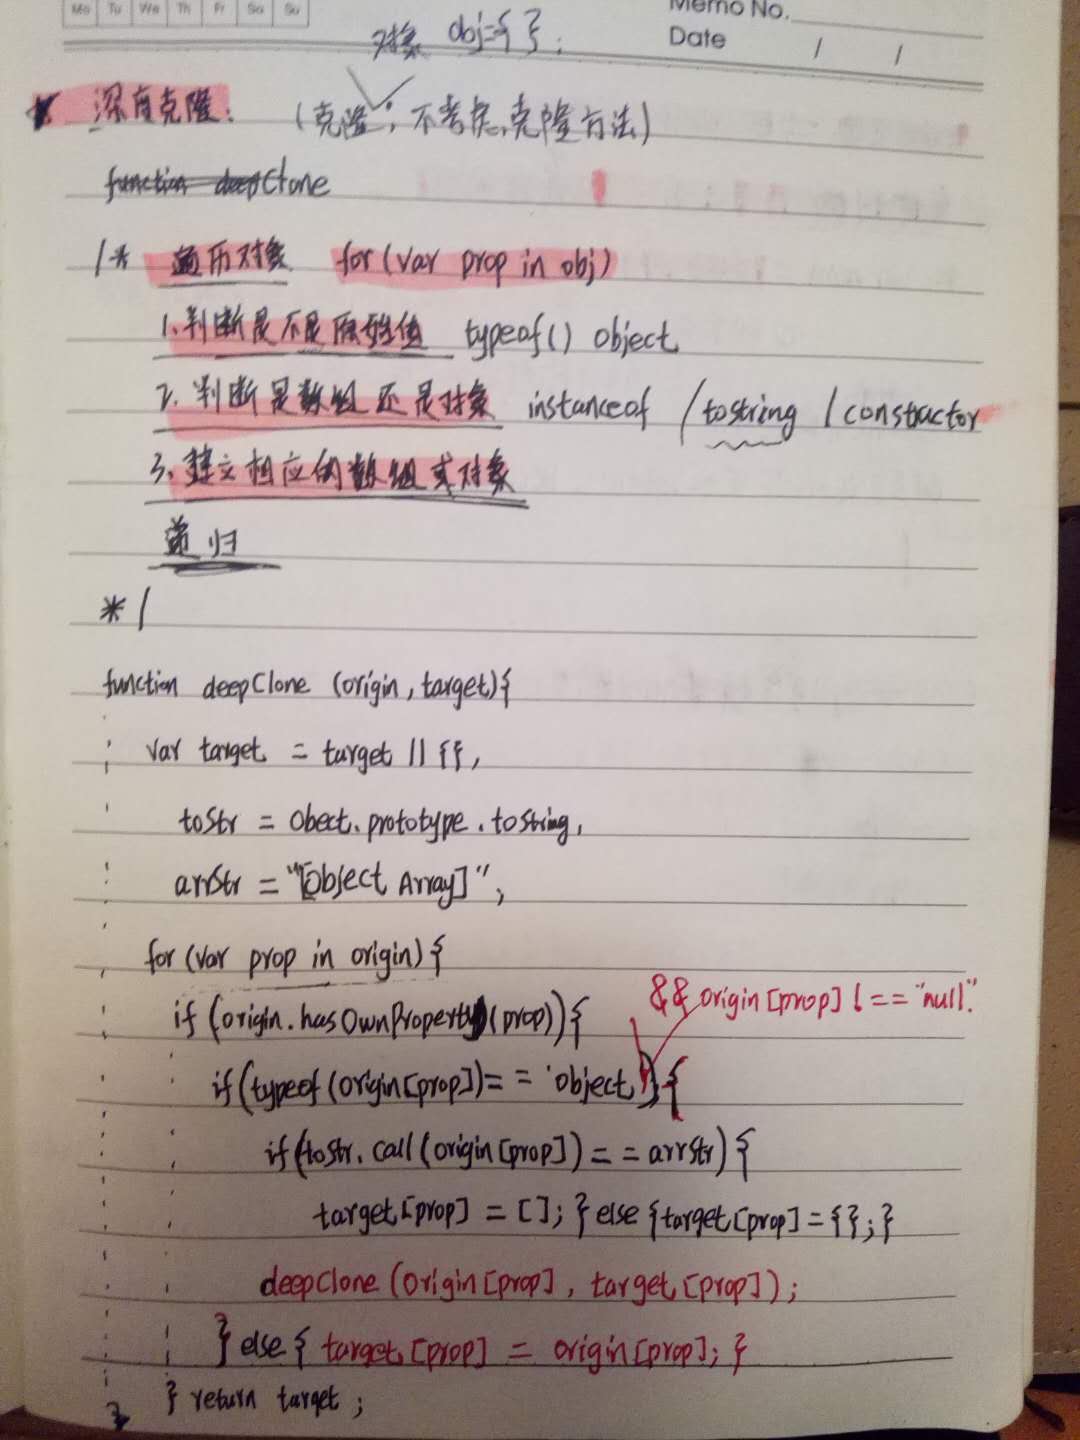 Mo Tu We Th Fr Sa Su
Memo No.
Date / /
对象 obj={ };
深度克隆: (克隆; 不考虑克隆方法)
function deepClone
/* 遍历对象 for(var prop in obj)
1.判断是不是原始值 typeof() object
2.判断是数组还是对象 instanceof /tostring / constructor
3.建立相应的数组或对象
递归
*/
function deepClone (origin, target){
var target = target || {},
toStr = Obect.prototype.tostring,
arrStr = "[Object Array]",
for (var prop in origin) {
&& origin[prop] !== "null".
if (origin.hasOwnProperty(prop)){
if(typeof(origin[prop])== 'object'){
if(toStr.call(origin[prop])==arrStr){
target[prop] = []; } else {target[prop]={};}
deepClone (origin[prop], target[prop]);
} else { target[prop] = origin[prop]; }
} return target;
}